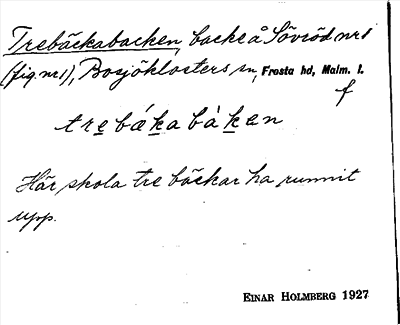 Trebäckabacken, backe å Sövröd nr 1
(fig. nr 1), Bosjöklosters sn, Frosta hd, Malm. l.
f
trebákabàken
Här skola tre bäckar ha runnit
upp.
EINAR HOLMBERG 1927